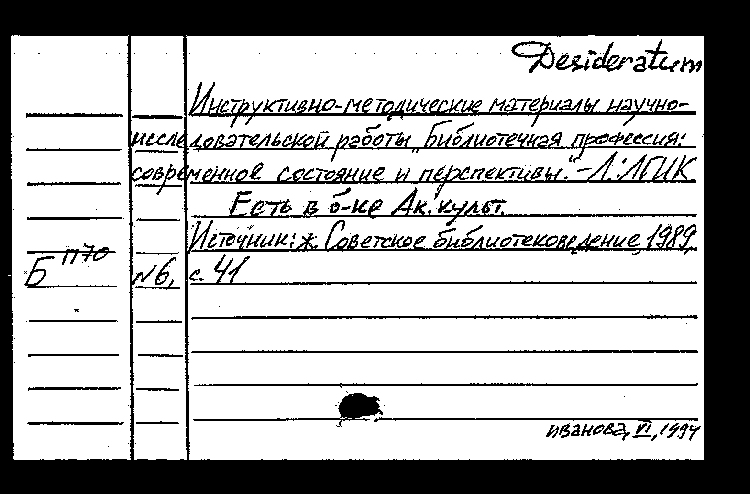 Desideratum
Инструктивно-методические материалы научно-
исследовательской работы „Библиотечная профессия:
современное состояние и перспективы." - Л.: ЛГИК
Есть в б-ке Ак. культ.
Источник: ж. Советское библиотековедение, 1989,
Б 1170 N6, с. 41
Иванова, VI, 1994